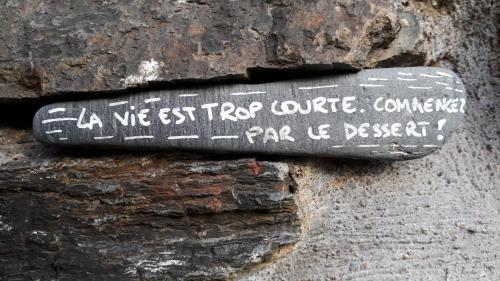 LA VIE EST TROP COURTE. COMMENCEZ
PAR LE DESSERT!